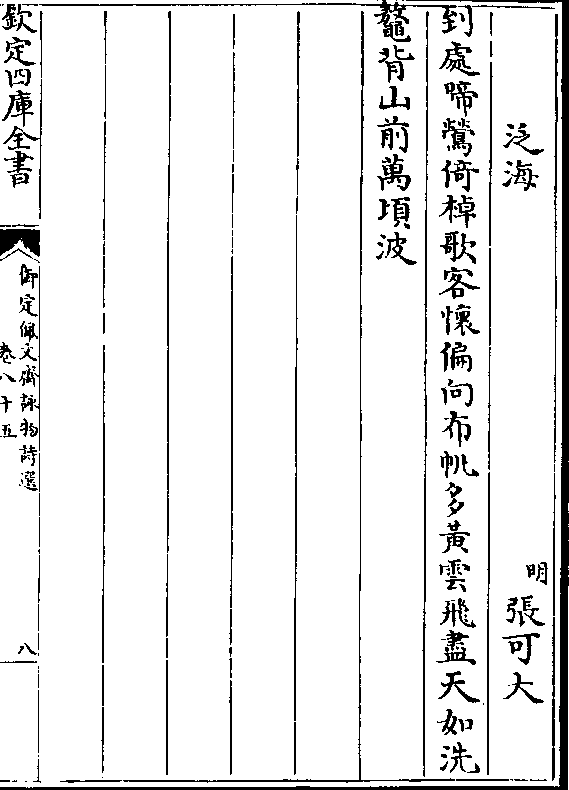 泛海
明
張可大
到處啼鶯倚棹歌客懷偏向布帆多黃雲飛盡天如洗
鼇背山前萬頃波
欽定四庫全書
御定佩文齋詠物詩選
卷八十五
八